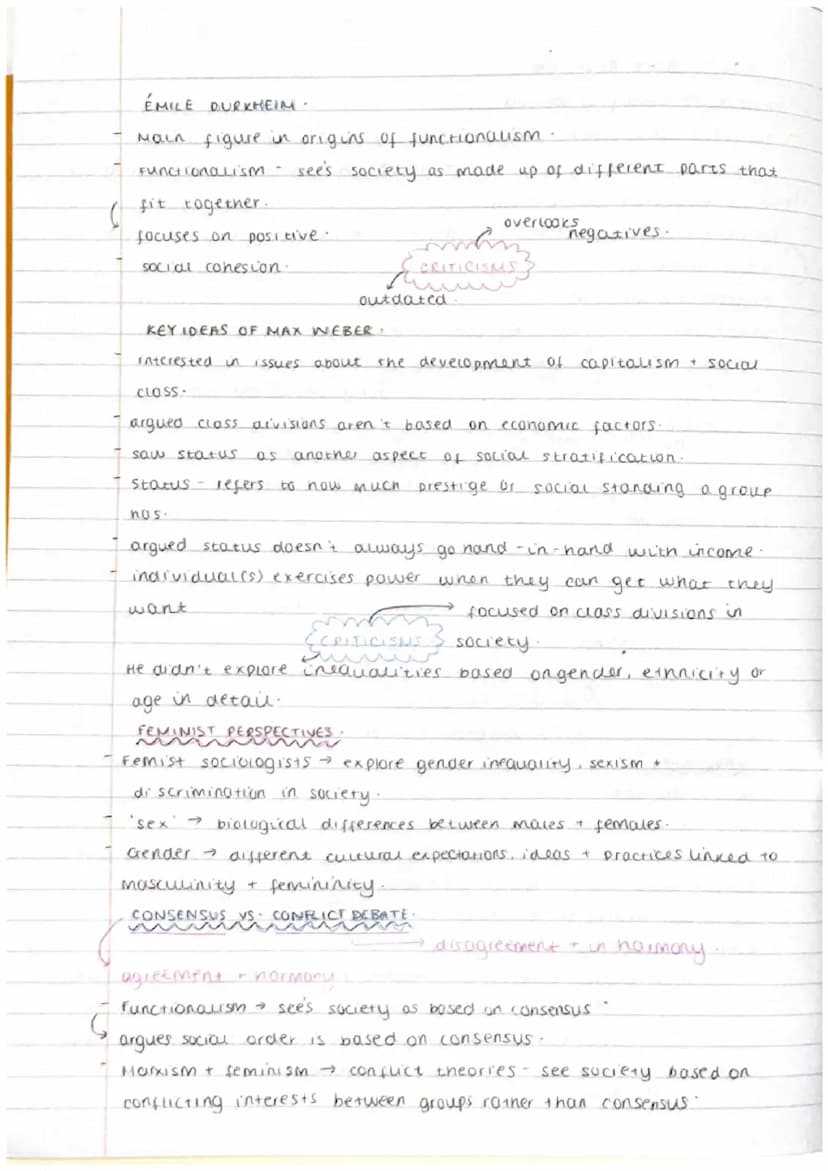 ÉMILE DURKHEIM.
- Main figure in origins of functionalism.
- Functionalism - see's society as made up of different parts that
fit together.
focuses on positive.
overlooks negatives.
- social cohesion.
CRITICISMS
outdated.
KEY IDEAS OF MAX WEBER.
- interested in issues about the development of capitalism + social
class.
- argued class divisions aren't based on economic factors.
- saw status as another aspect of social stratification.
- Status - refers to how much prestige or social standing a group
has.
- argued status doesn't always go hand-in-hand with income.
- individual(s) exercises power when they can get what they
want
focused on class divisions in
society.
CRITICISMS
He didn't explore inequalities based on gender, ethnicity or
age in detail.
FEMINIST PERSPECTIVES.
- Femist sociologists → explore gender inequality, sexism +
discrimination in society.
- 'sex' → biological differences between males + females.
- Gender → different cultural expectations, ideas + practices linked to
masculinity + femininity.
CONSENSUS VS. CONFLICT DEBATE.
→ disagreement + in harmony.
agreement + harmony.
- Functionalism → see's society as based on consensus.
argues social order is based on consensus.
- Marxism + feminism → conflict theories - see society based on
conflicting interests between groups rather than consensus.